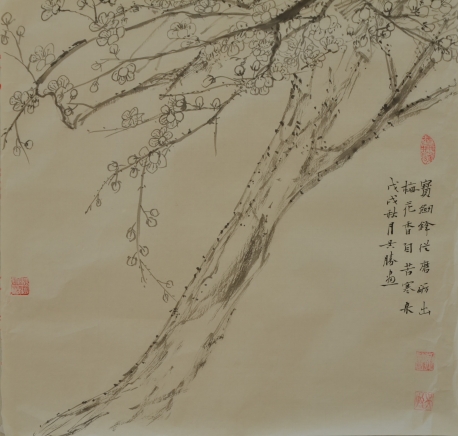 寶劍鋒從磨礪出
梅花香自苦寒來
戊戌秋月 勝画